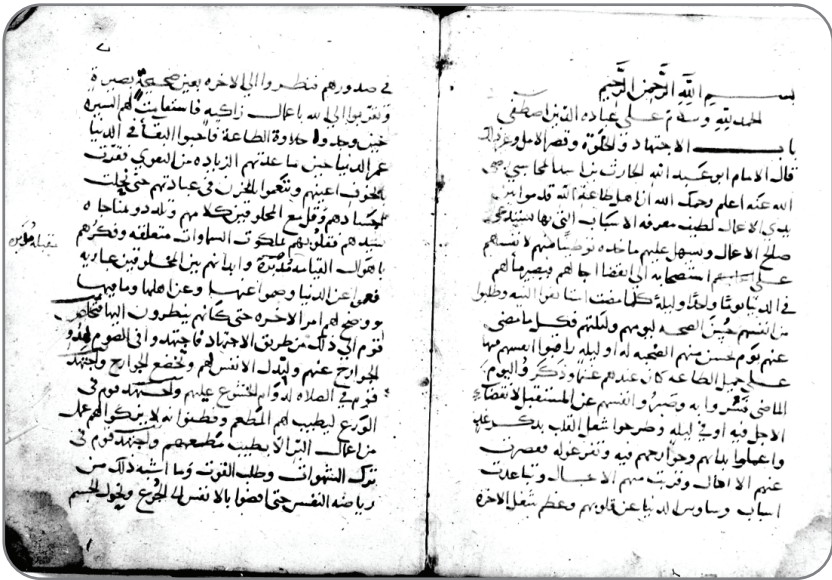 بسم الله الرحمن الرحيم
الحمد لله وسلام على عباده الذين اصطفى
باب الاجتهاد والخلوة وقصر الامل
قال الامام ابو عبد الله الحارث بن اسد المحاسبي رضي
الله عنه اعلم رحمك الله ان اهل طاعة الله قدموا بين
يدي الاعمال لطيف معرفه الاسباب التي بها
صالح الاعمال وسهل عليهم ماخده توطينا منهم لانفسهم
على استصحابه الى انقضا اجالهم فصير مالهم
في الدنيا يوما واحدا وليلة كلما مضت النيه وطلبوا
من انفسهم حسن الصحبه ليومهم وليلتهم فكل ما مضى
عنهم يوم بحسن منهم الصحبه له او ليله راضوا انفسهم فيها
على جميل الطاعه كان عندهم وذكر واليوم
الماضي فسروا به وصبروا انفسهم عن المستقبل لانقضاء
الاجل فيه او في ليله وطرحوا شغل القلب بذكر غد
واعملوا ابدانهم وجوارحهم فيه وتفرغوا له فقصرت
عنهم الامال وقربت منهم الاجال وتباعدت
اسباب وساوس الدنيا عن قلوبهم وعظم شغل الاخرة
في صدورهم فنظروا الى الاخره بعين صحيحة بصيرة
وتقربوا الى الله باعمال زاكيه فاستقامت لهم السيرة
حين وجدوا حلاوة الطاعة فاحبوا البقاء في الدنيا
الدنيا حين ساعدتهم الزياده من التقوى فقرت
بالخوف اعينهم وتنعموا بالحزن في عبادتهم حتى نحلت
اجسادهم وقل مع المخلوقين كلامهم وتلذذوا بمناجاة
سيدهم فقلوبهم بملكوت السماوات متعلقه وفكرهم
باهوال القيامة وابدانهم بين المخلوقين عاريه
فعموا عن الدنيا وصموا عنها وعن اهلها وما فيها
ووضح لهم امر الاخره حتى كانهم ينظرون اليها
قوم الى ذلك من طريق الاجتهاد فاجتهدوا في الصوم
الجوارح عنهم الانفس لهم وتخضع الجوارح واجتهد
قوم في الصلاه لدوام الخشوع عليهم واجتهد قوم في
الورع ليطيب لهم المطعم وفطنوا انه لا يزكوا لهم عمل
من اعمال البر الا بطيب مطعمهم واجتهد قوم في
ترك الشهوات وطلب القوت وما اشبه ذلك من
رياضه النفس حتى افضوا بالانفس الى الجوع ونحول الجسم